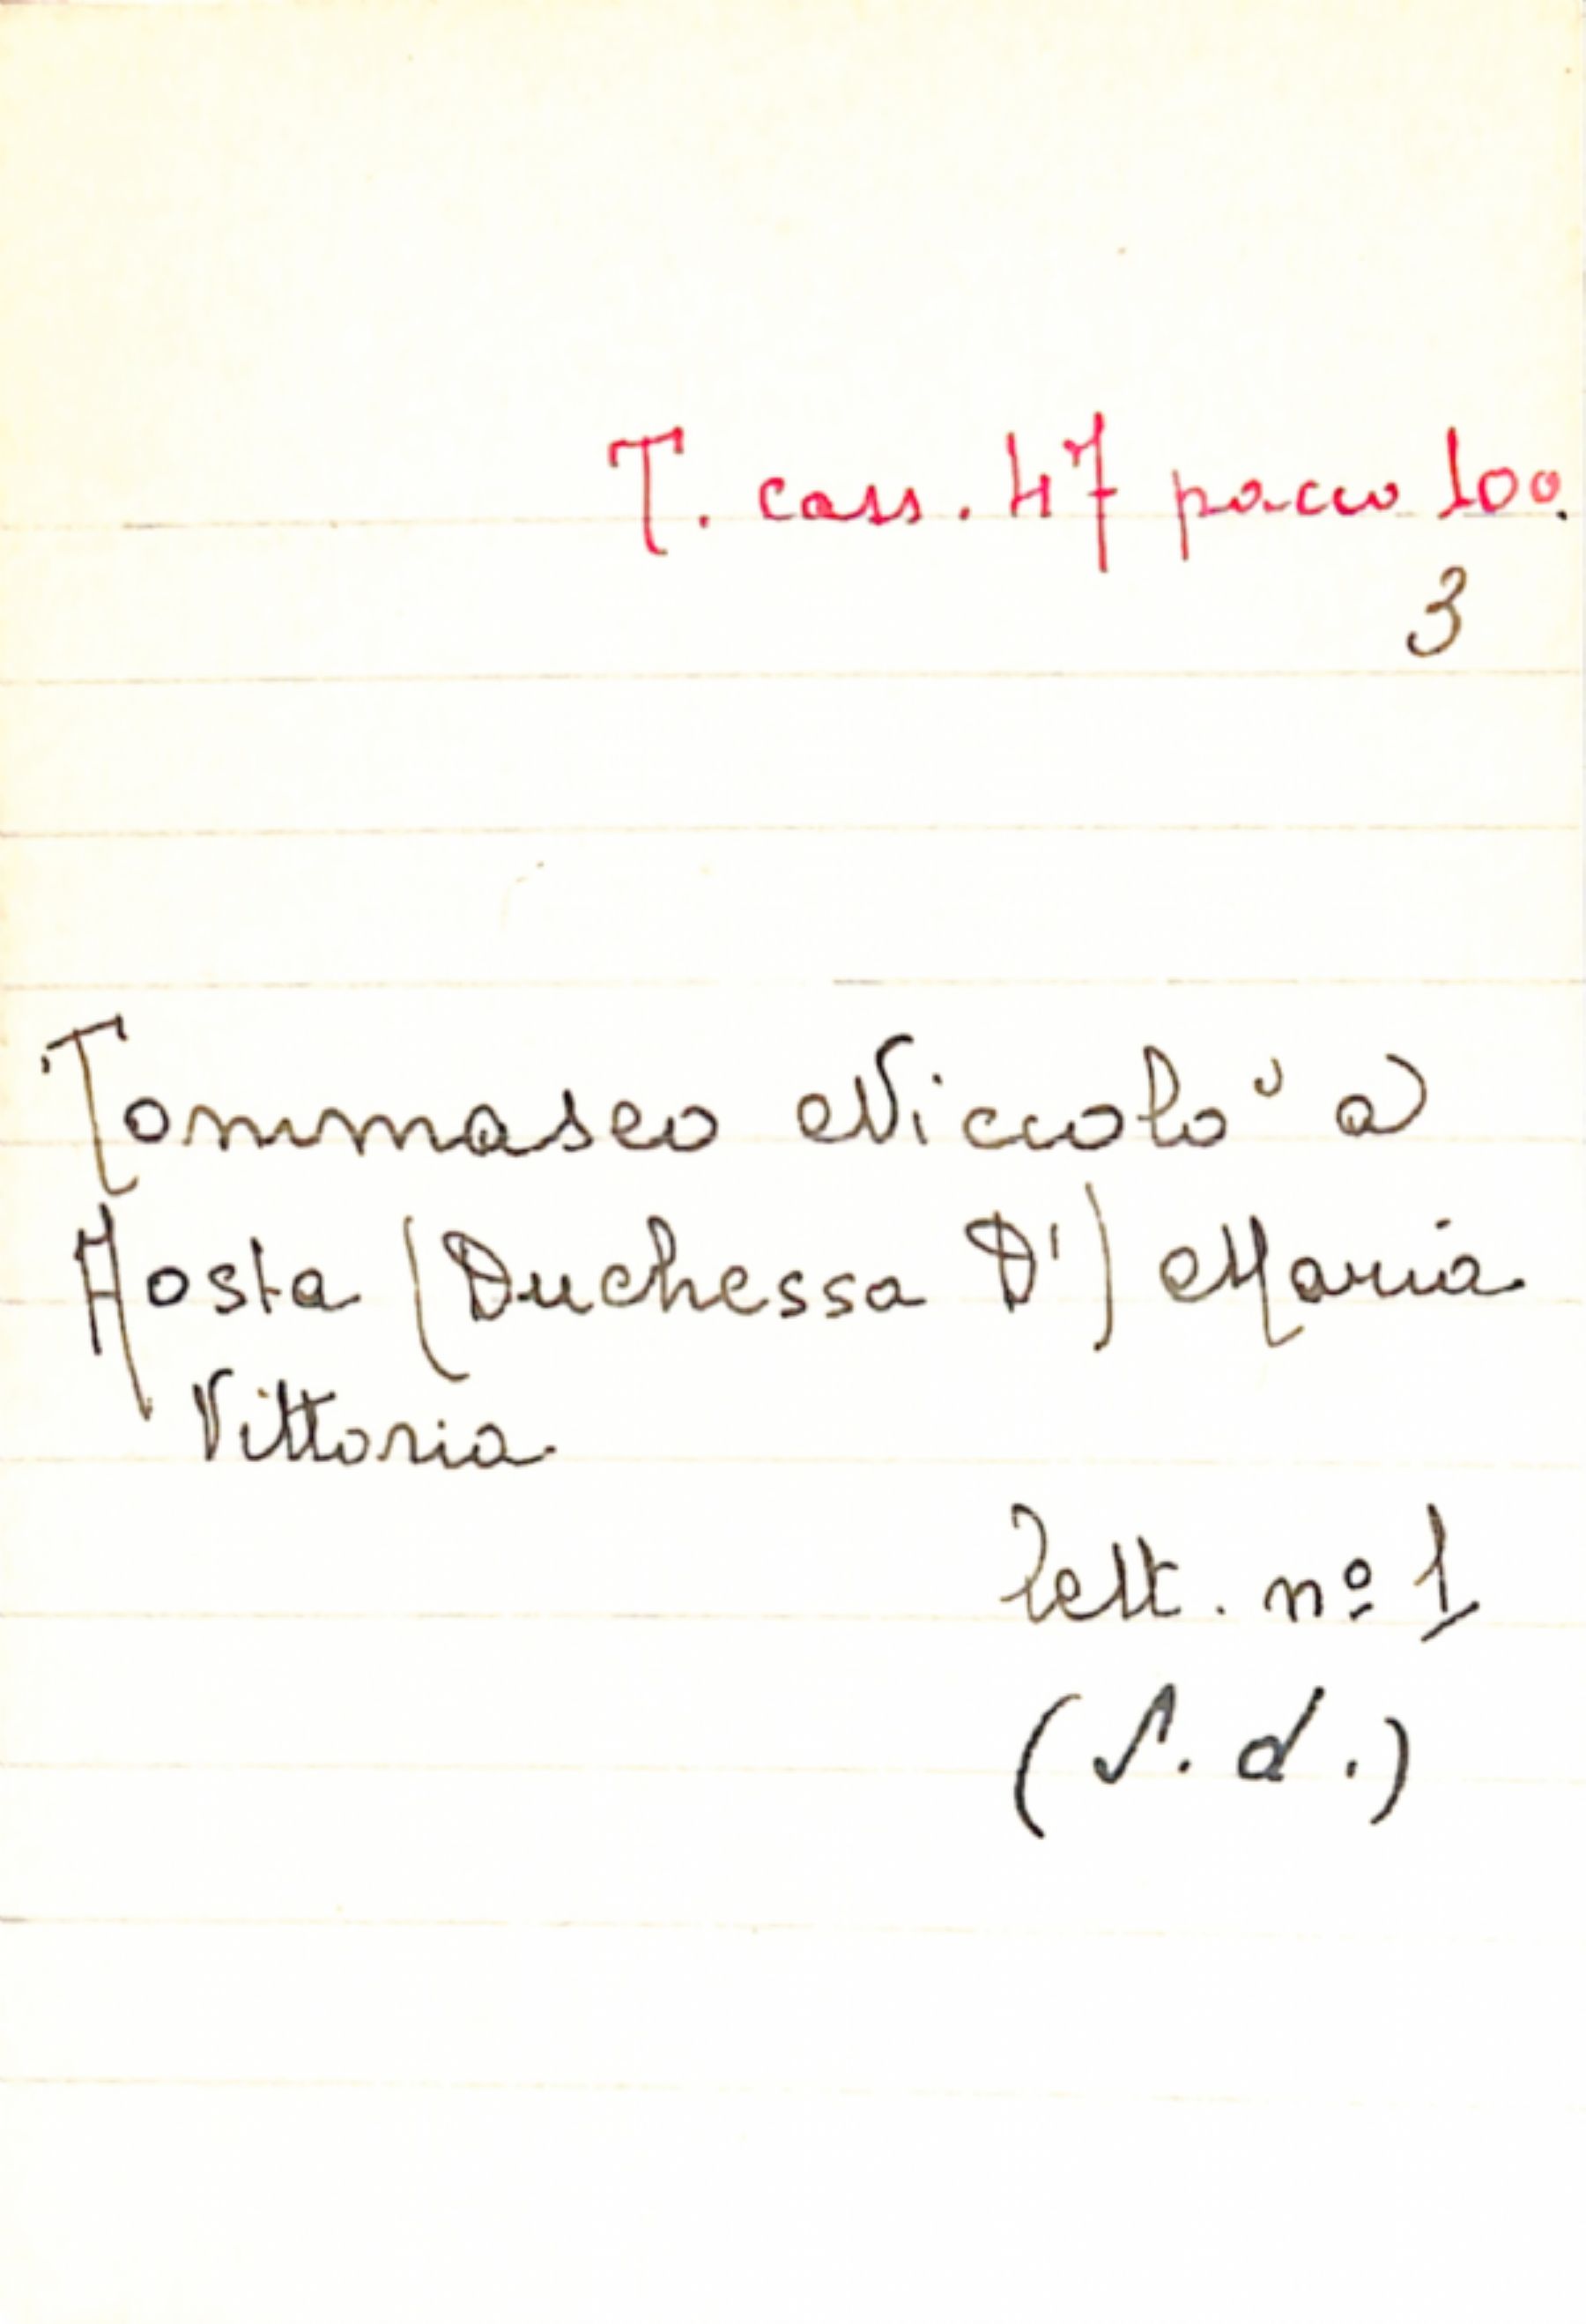 T. cass. 47 pacco 100.
3
Tommaseo Niccolò a
Aosta (Duchessa D') Maria
Vittoria
lett. nº 1
(S. d.)